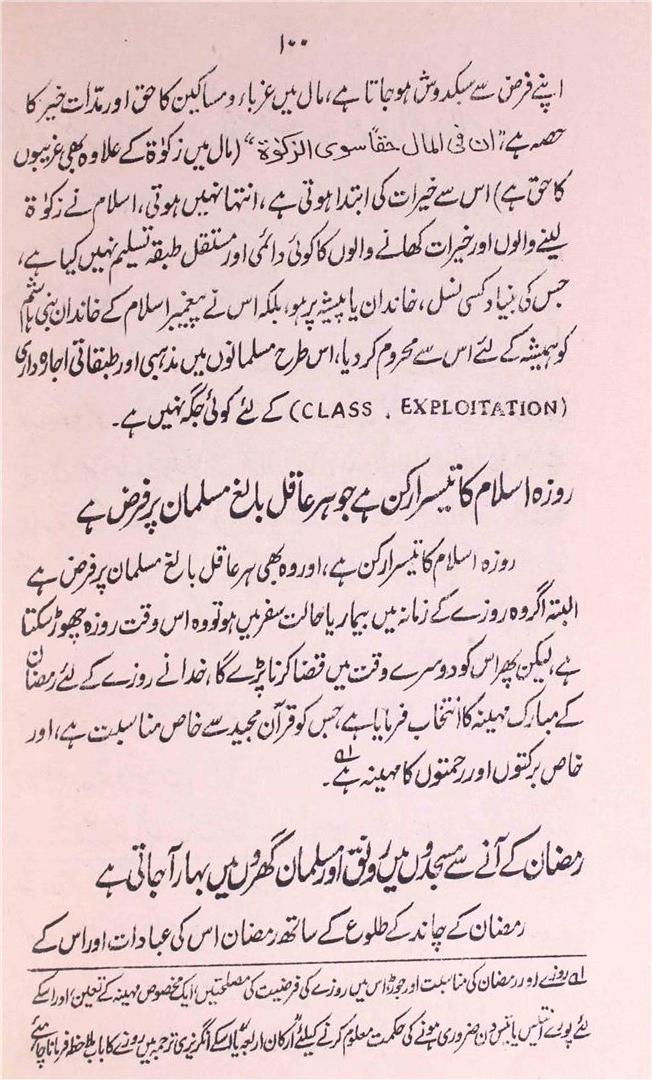 ۱۰۰
اپنے فرض سے سبکدوش ہوجاتا ہے، مال میں غرباء و مساکین کا حق اور مدّات خیر کا
حصہ ہے، "ان فی المال حقًا سوی الزکوٰۃ" (مال میں زکوٰۃ کے علاوہ بھی غریبوں
کا حق ہے) اس سے خیرات کی ابتدا ہوتی ہے، انتہا نہیں ہوتی، اسلام نے زکوٰۃ
لینے والوں اور خیرات کھانے والوں کا کوئی دائمی اور مستقل طبقہ تسلیم نہیں کیا ہے،
جس کی بنیاد کسی نسل، خاندان یا پیشہ پر ہو، بلکہ اس نے پیغمبر اسلام کے خاندان بنی ہاشم
کو ہمیشہ کے لئے اس سے محروم کر دیا، اس طرح مسلمانوں میں مذہبی اور طبقاتی اجارہ داری
(CLASS . EXPLOITATION) کے لئے کوئی جگہ نہیں ہے۔
روزہ اسلام کا تیسرا رکن ہے جو ہر عاقل بالغ مسلمان پر فرض ہے
روزہ اسلام کا تیسرا رکن ہے، اور وہ بھی ہر عاقل بالغ مسلمان پر فرض ہے
البتہ اگر وہ روزے کے زمانہ میں بیمار یا حالت سفر میں ہو تو وہ اس وقت روزہ چھوڑ سکتا
ہے، لیکن پھر اس کو دوسرے وقت میں قضا کرنا پڑے گا، خدا نے روزے کے لئے رمضان
کے مبارک مہینہ کا انتخاب فرمایا ہے، جس کو قرآن مجید سے خاص مناسبت ہے، اور
خاص برکتوں اور رحمتوں کا مہینہ ہے۔ لہ
رمضان کے آنے سے مسجدوں میں رونق اور مسلمان گھروں میں بہار آجاتی ہے
رمضان کے چاند کے طلوع کے ساتھ رمضان اس کی عبادات اور اس کے
لہ روزے اور رمضان کی مناسبت اور جوڑ اس میں روزے کی فرضیت کی مصلحتیں، ایک مخصوص مہینہ کے تعین، اور اسکے
لئے پورے انتیس یا تیس دن ضروری ہونے کی حکمت معلوم کرنے کیلئے "ارکان اربعہ" یا اسکے انگریزی ترجمہ میں روزے کا باب ملاحظہ فرمانا چاہئے